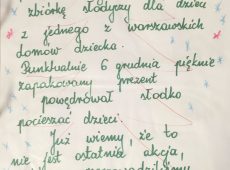 zbiórkę słodyczy dla dzieci
z jednego z warszawskich
domów dziecka.
Punktualnie 6 grudnia pięknie
zapakowany prezent
powędrował słodko
pocieszać dzieci.
Już wiemy, że to
nie jest ostatnia akcja,